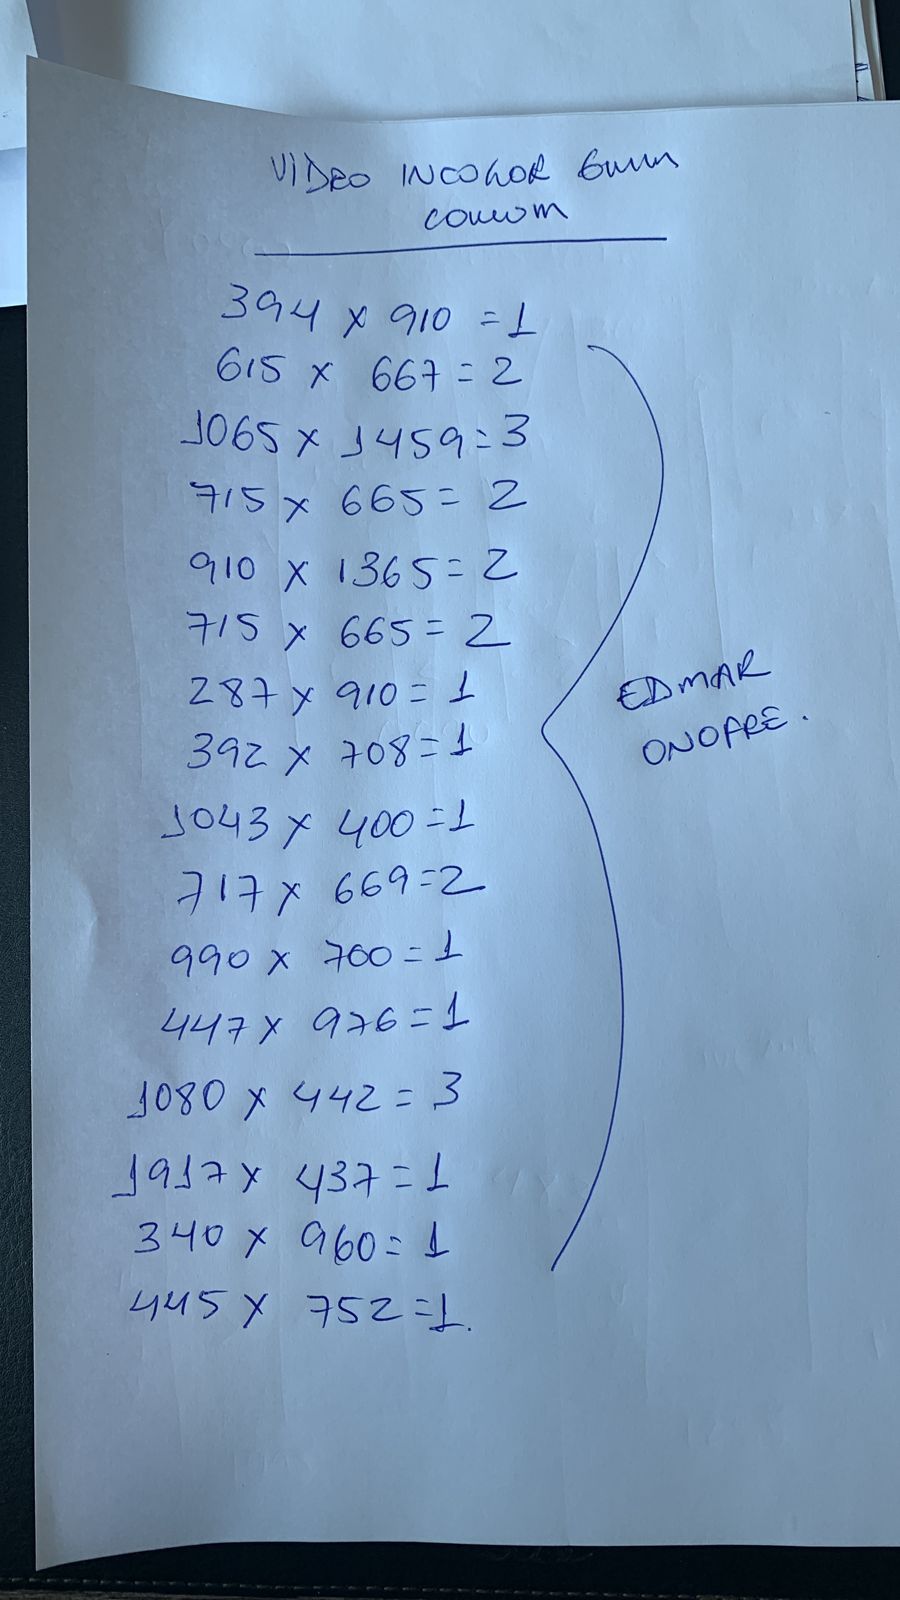 VIDRO INCOLOR 6mm
comum
394 x 910 = 1
615 x 667 = 2
1065 x 1459 = 3
715 x 665 = 2
910 x 1365 = 2
715 x 665 = 2
287 x 910 = 1
392 x 708 = 1
1043 x 400 = 1
717 x 669 = 2
990 x 700 = 1
447 x 976 = 1
1080 x 442 = 3
1917 x 437 = 1
340 x 960 = 1
445 x 752 = 1.
EDMAR
ONOFRE.